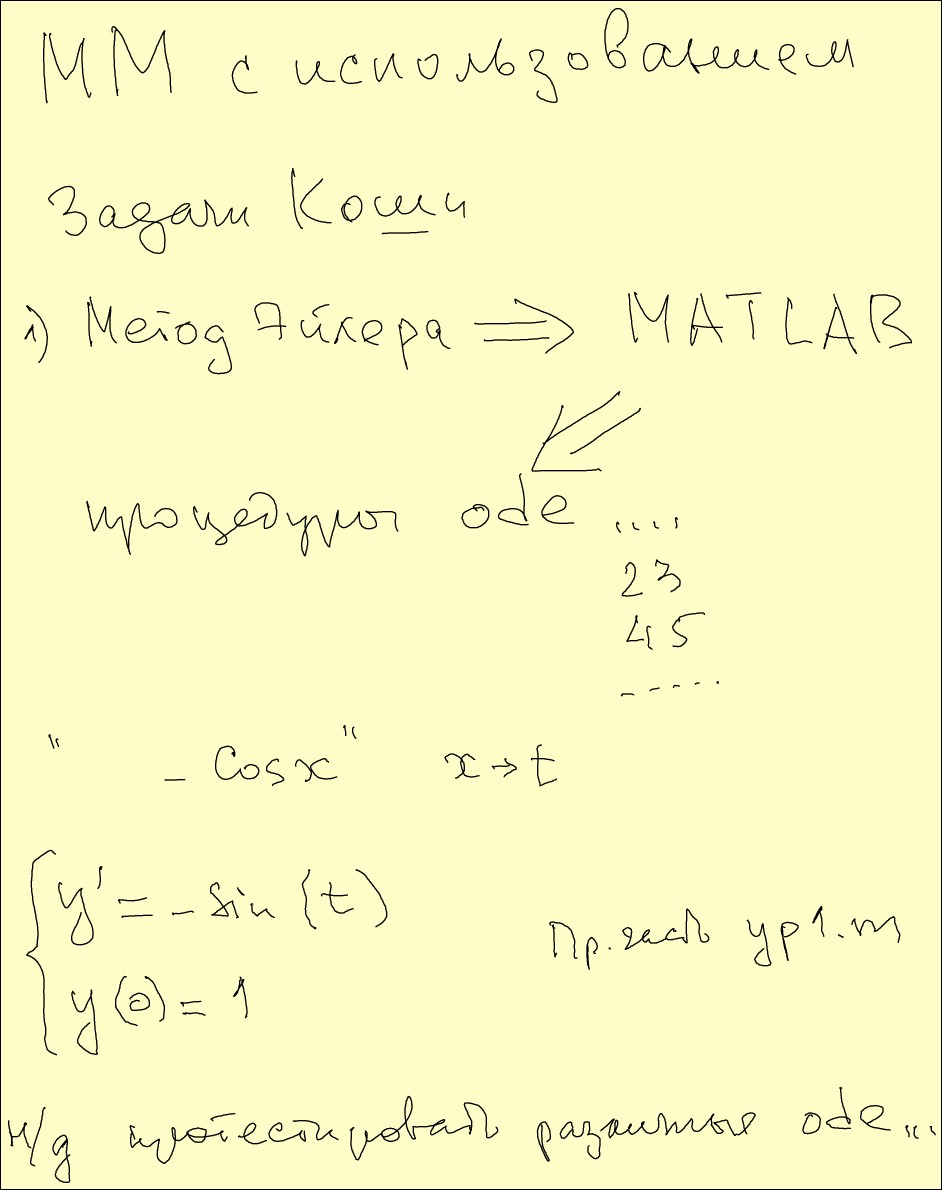 ММ с использованием
Задачи Коши
1) Метод Эйлера ⇒ MATLAB
процедуры ode ....
23
45
-----
" - Cosx" x→t
y' = - Sin (t)
y(0) = 1
Пр. часть yp1.m
н/д протестировать различные ode...